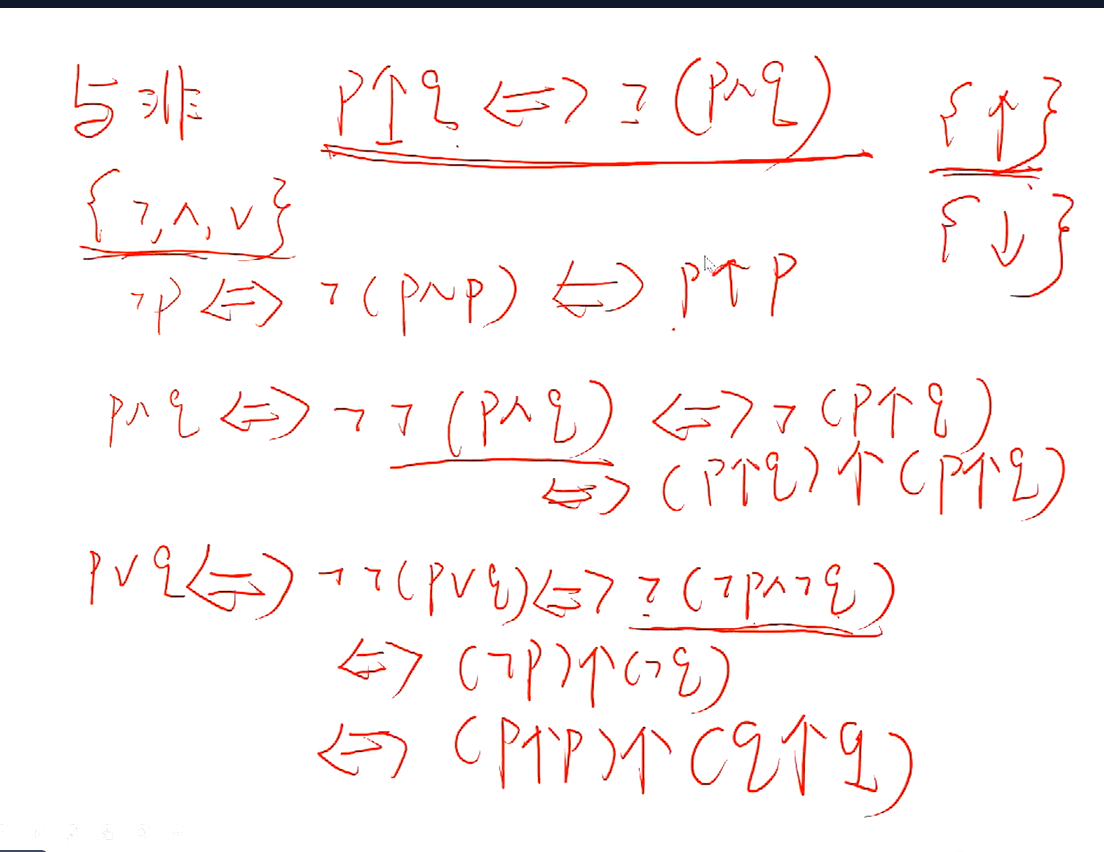 与非 P↑q ⇔ ¬(p∧q) {↑}
{¬,∧,∨} {↓}
¬p ⇔ ¬(p∧p) ⇔ p↑p
p∧q ⇔ ¬¬(p∧q) ⇔ ¬(P↑q)
⇔ (P↑q)↑(p↑q)
p∨q ⇔ ¬¬(p∨q) ⇔ ¬(¬p∧¬q)
⇔ (¬p)↑(¬q)
⇔ (p↑p)↑(q↑q)